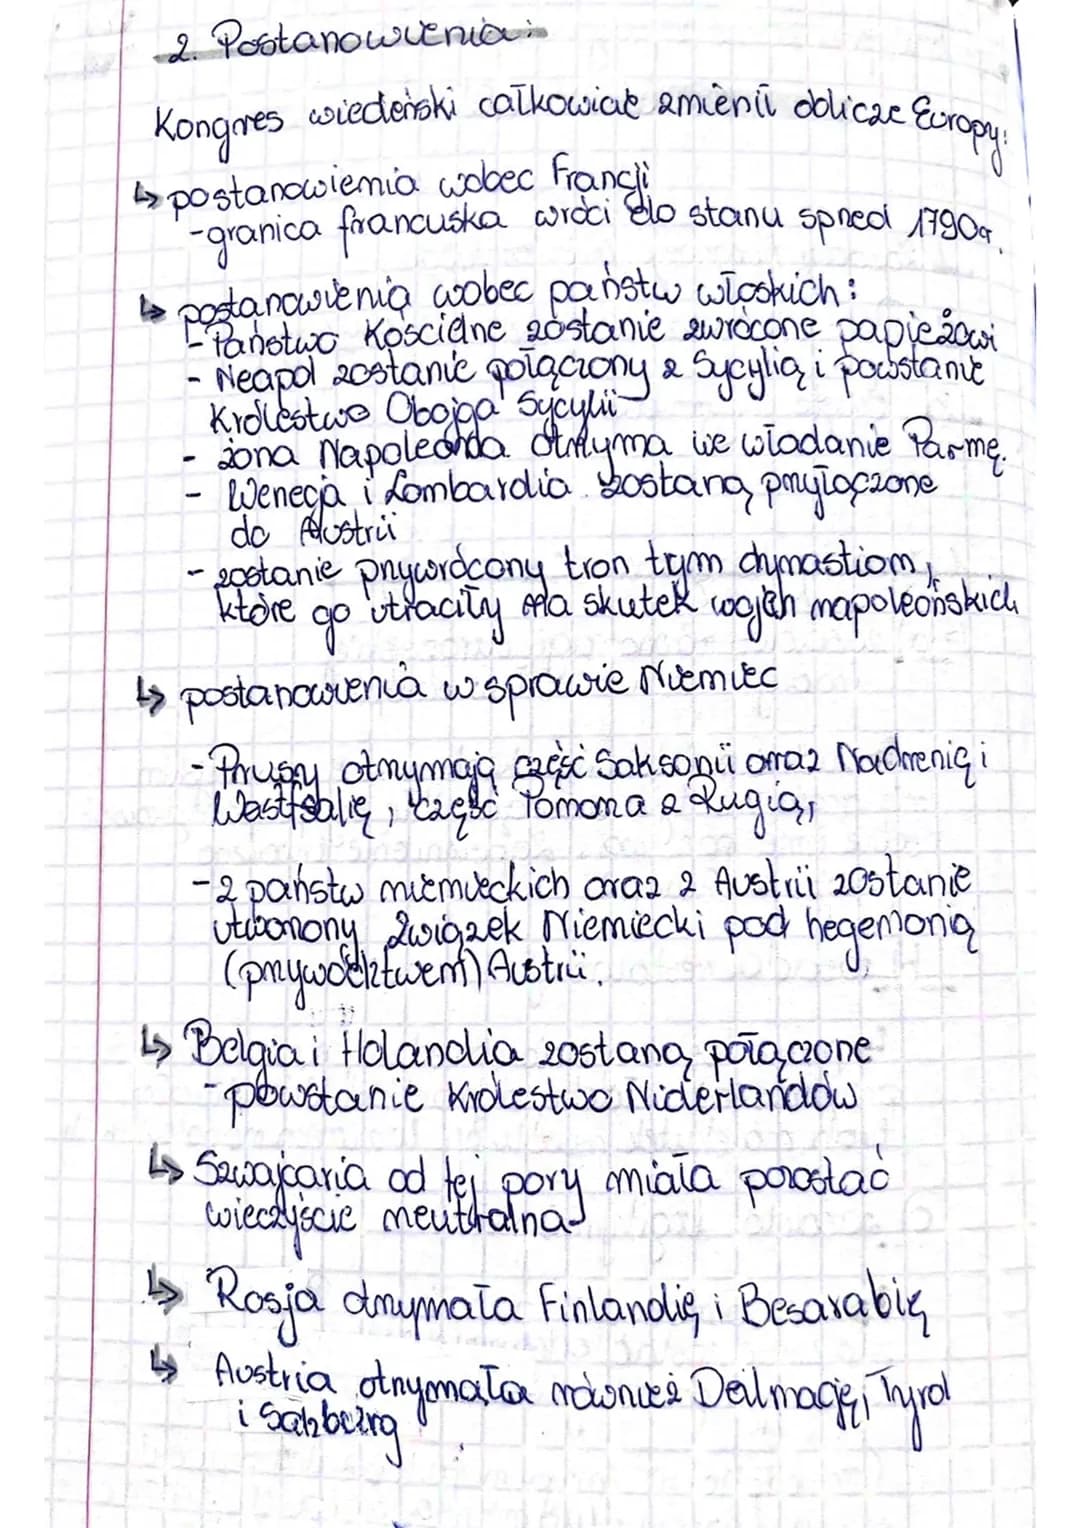 2. Postanowienia:
Kongres wiedeński całkowicie zmienił oblicze Europy:
↳ postanowienia wobec Francji
-granica francuska wróci do stanu sprzed 1790r.
↳ postanowienia wobec państw włoskich:
- Państwo Kościelne zostanie zwrócone papieżowi
- Neapol zostanie połączony z Sycylią i powstanie
Królestwo Obojga Sycylii
- żona Napoleona otrzyma we władanie Parmę.
- Wenecja i Lombardia zostaną przyłączone
do Austrii
- zostanie przywrócony tron tym dynastiom,
które go utraciły na skutek wojen napoleońskich
↳ postanowienia w sprawie Niemiec
- Prusy otrzymają część Saksonii oraz Nadrenię i
Westfalię, część Pomorza z Rugią,
- z państw niemieckich oraz z Austrii zostanie
utworzony Związek Niemiecki pod hegemonią
(przywództwem) Austrii.
↳ Belgia i Holandia zostaną połączone
- powstanie Królestwo Niderlandów
↳ Szwajcaria od tej pory miała pozostać
wieczyście neutralna
↳ Rosja otrzymała Finlandię i Besarabię
↳ Austria otrzymała również Dalmację, Tyrol
i Salzburg